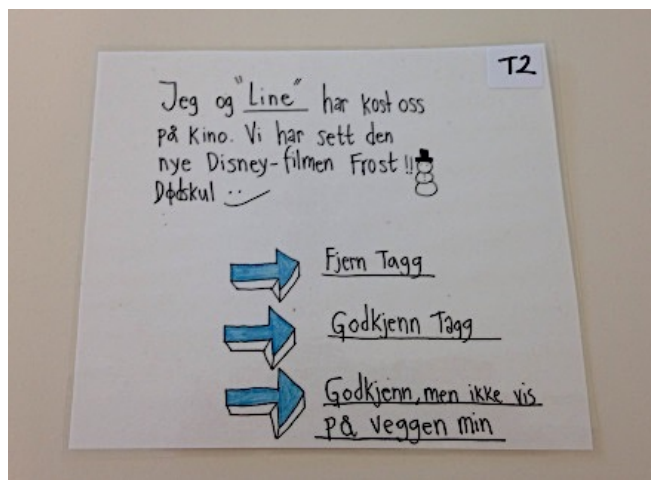 T2
Jeg og "Line" har kost oss
på kino. Vi har sett den
nye Disney-filmen Frost!!
Dødskul
Fjern Tagg
Godkjenn Tagg
Godkjenn, men ikke vis
på veggen min